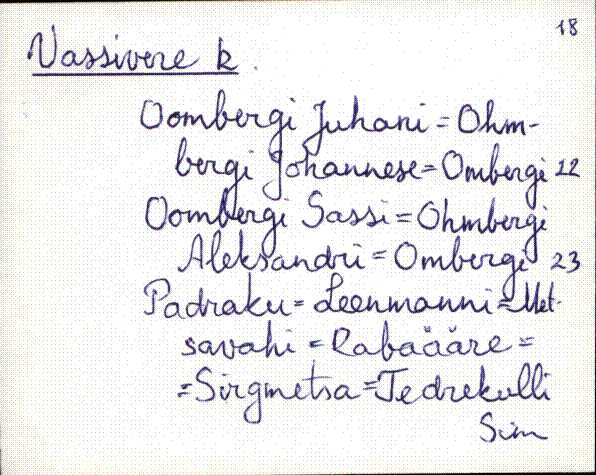 18
Vassivere k.
Oombergi Juhani = Ohm-
bergi Johannese = Ombergi 22
Oombergi Sassi = Ohmbergi
Aleksandri = Ombergi 23
Padraku = Leenmanni = Met-
savahi = Rabaääre =
= Sirgmetsa = Tedrekulli
Sim